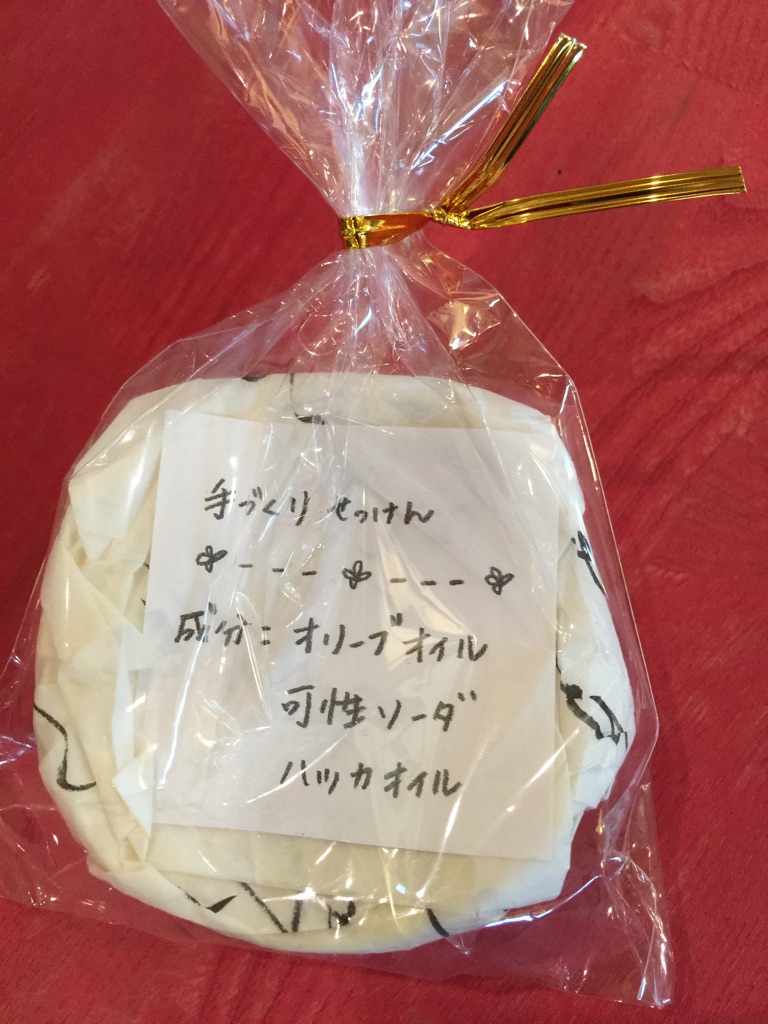 手づくり せっけん
成分：オリーブオイル
可性ソーダ
ハッカオイル